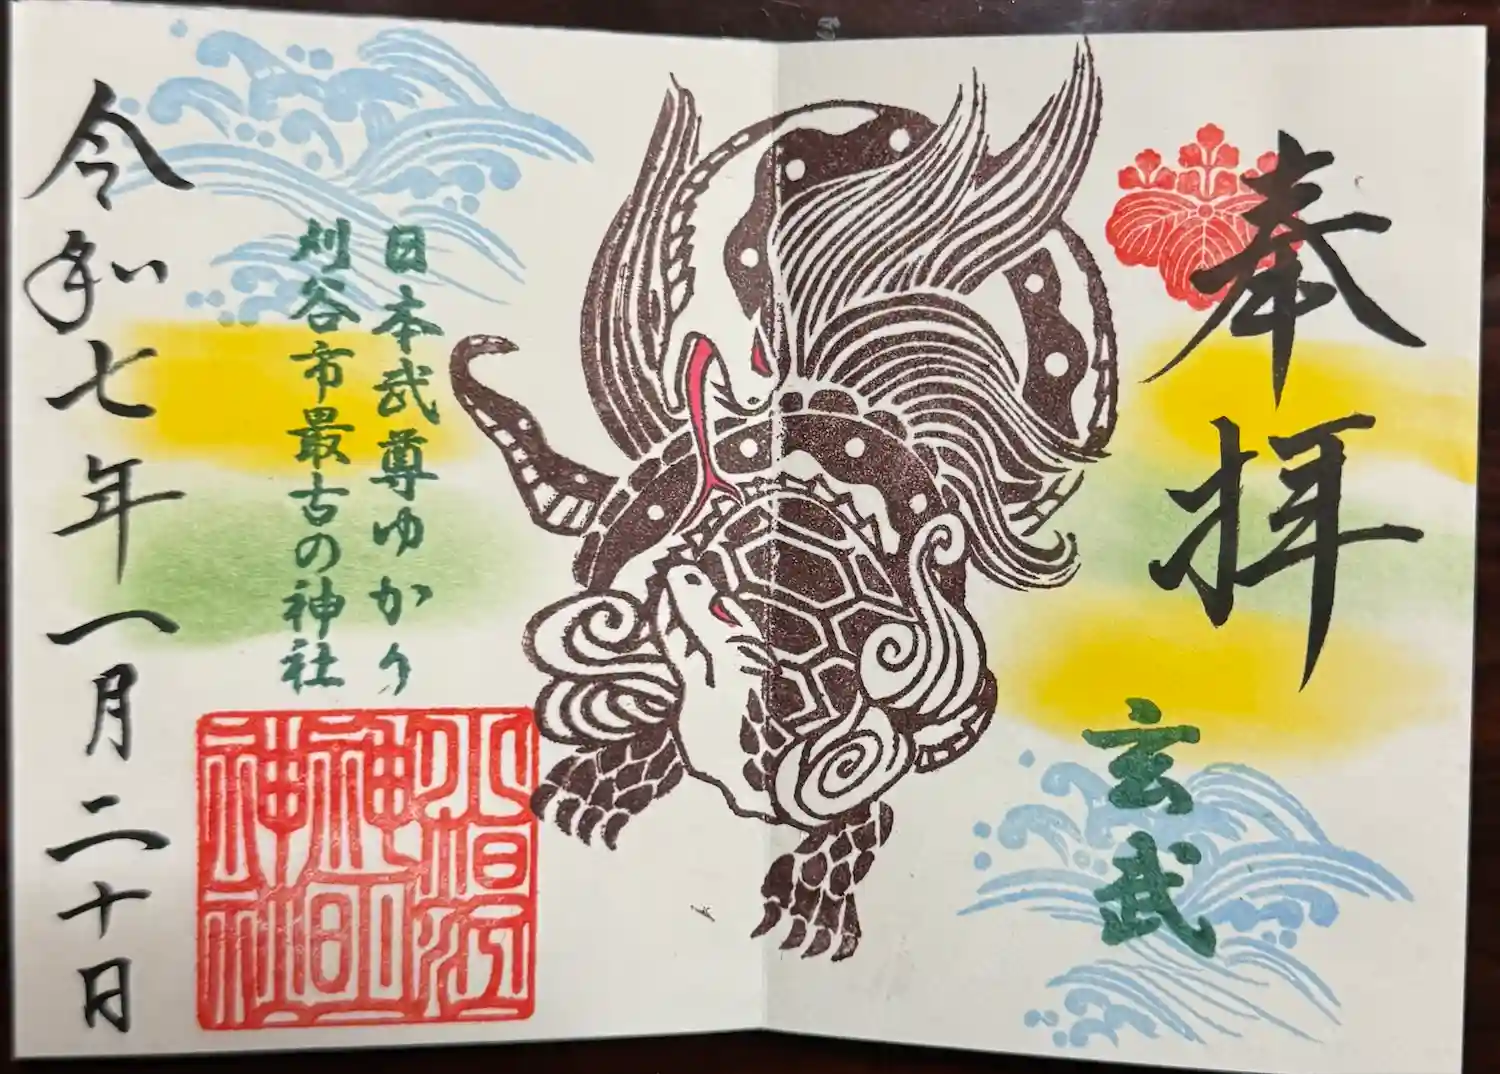 奉拝
玄武
日本武尊ゆかり
刈谷市最古の神社
小垣江
神明
神社
令和七年一月二十日